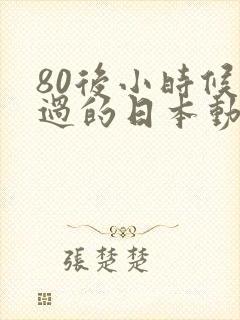 80後小時候
過的日本動
張楚楚